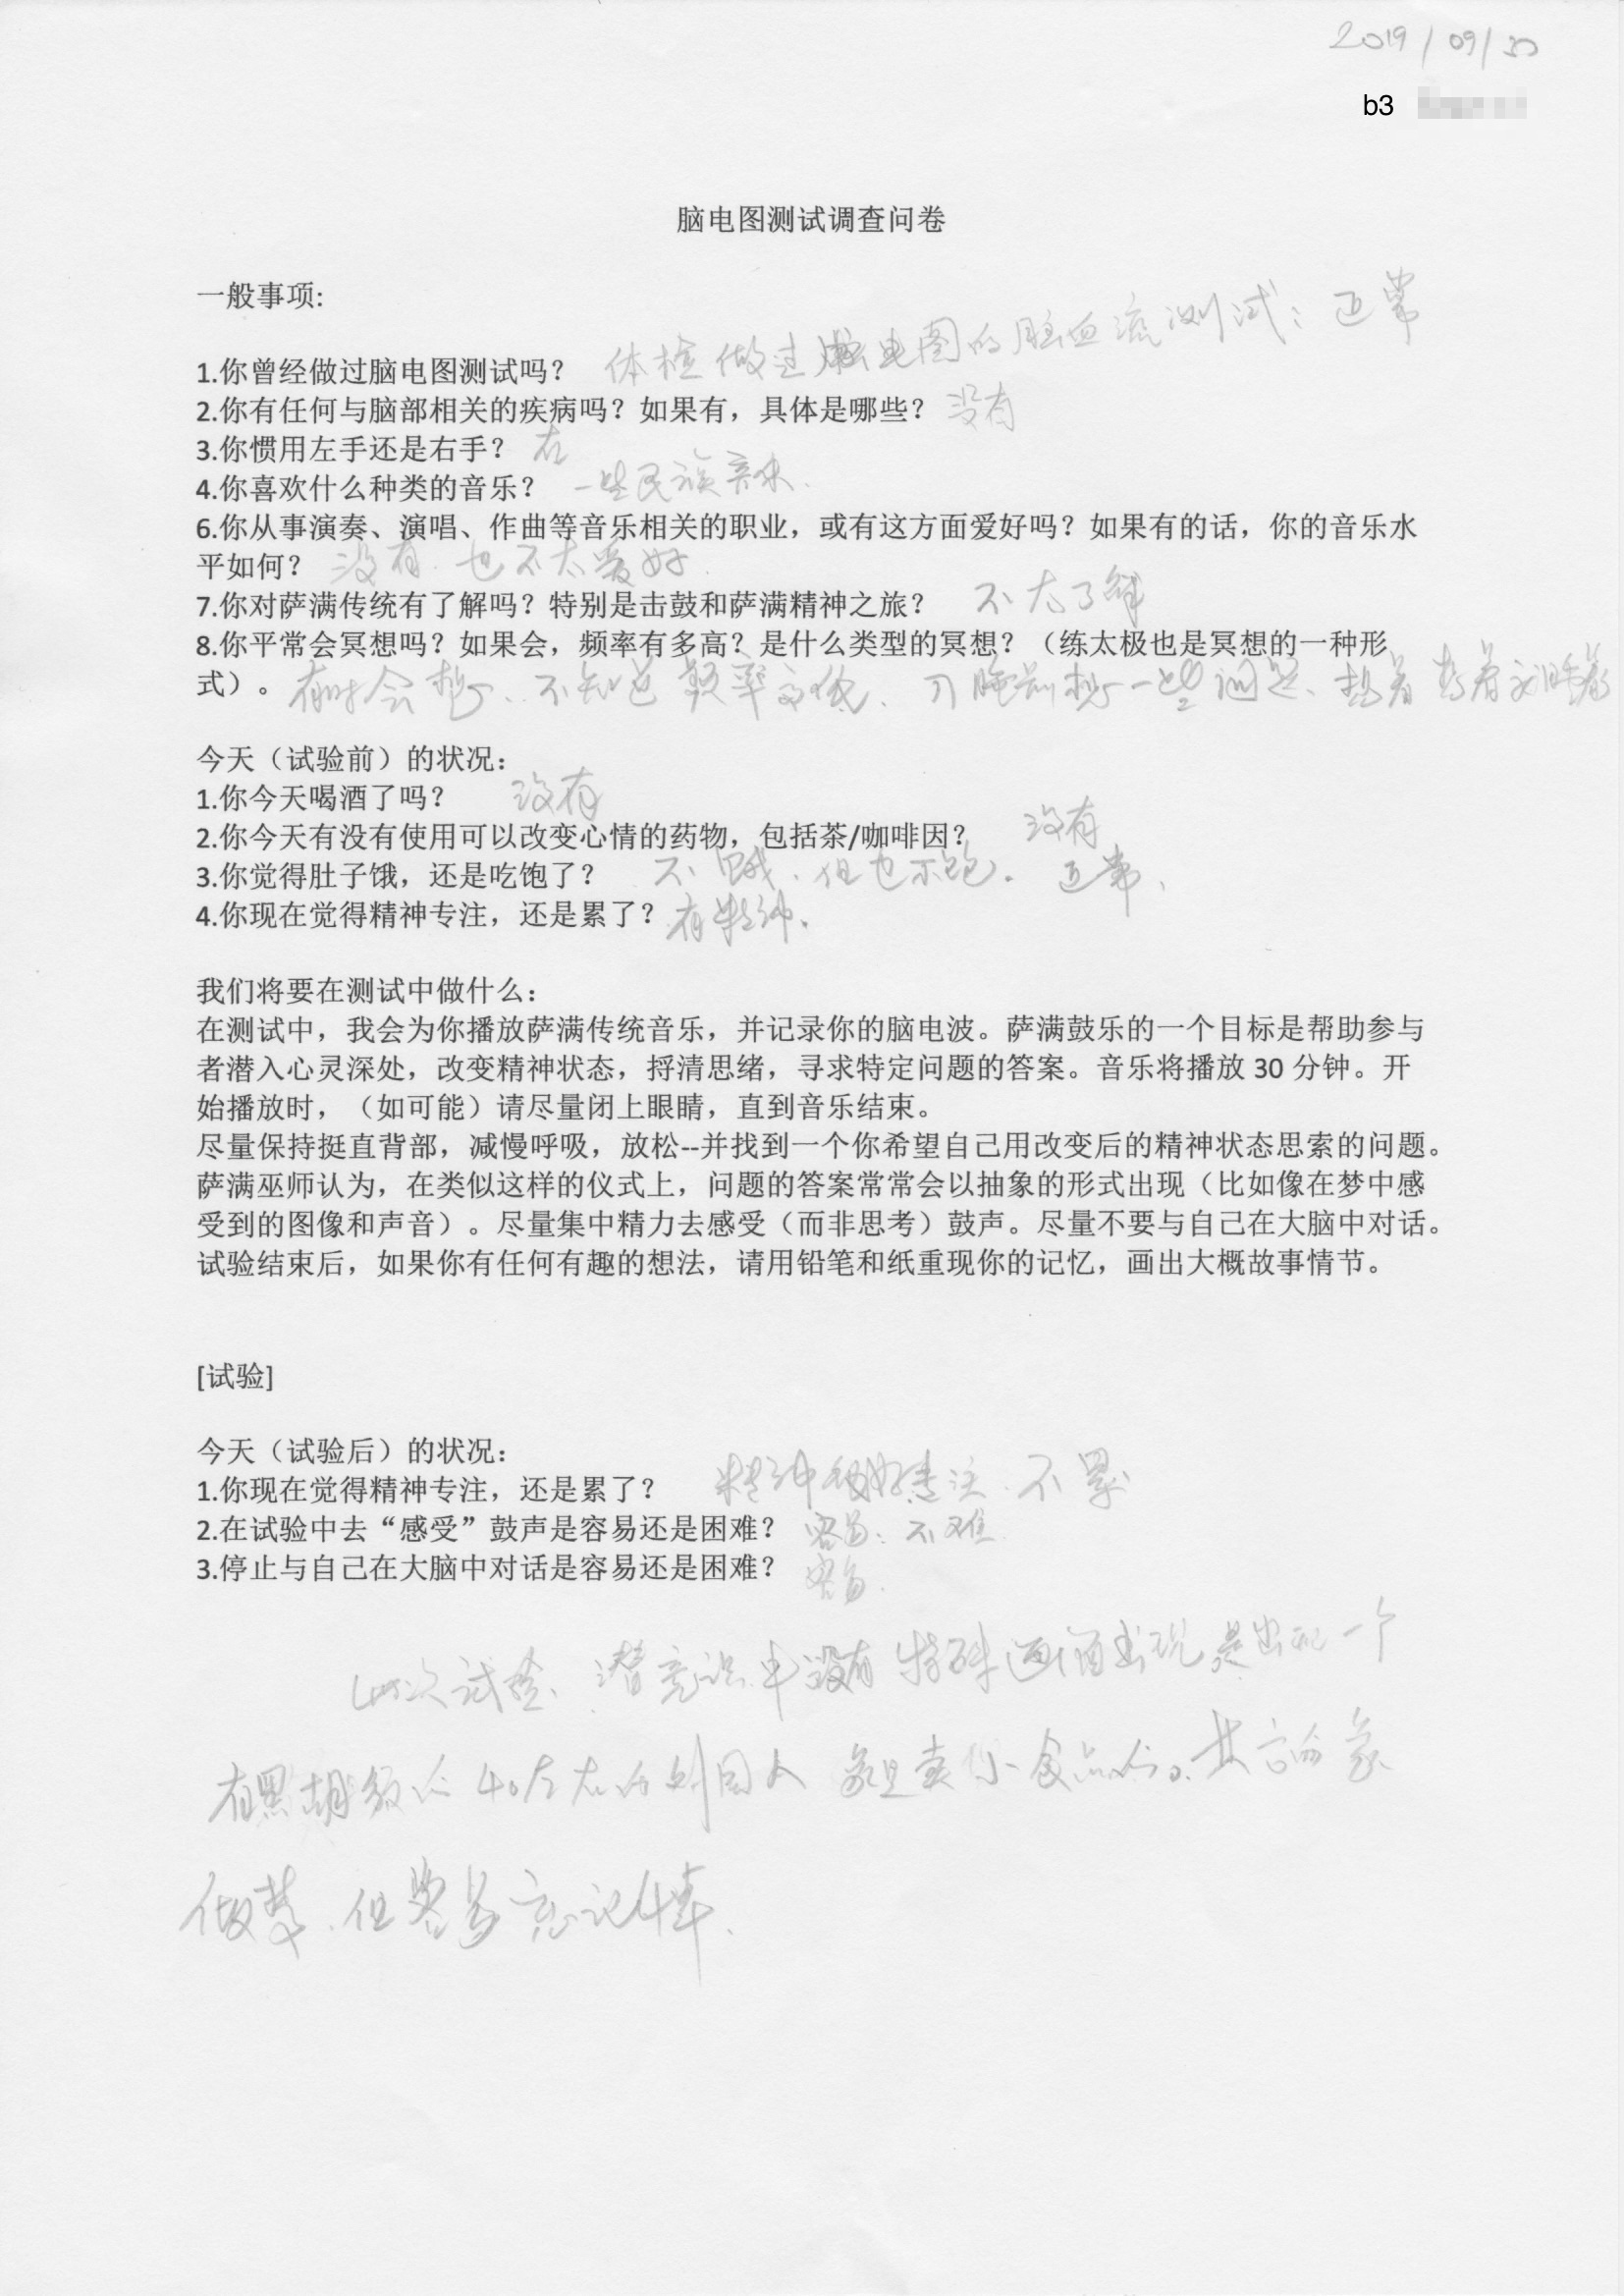 2019/09/30
b3
脑电图测试调查问卷
一般事项:
1.你曾经做过脑电图测试吗? 体检做过脑电图的脑血流测试：正常
2.你有任何与脑部相关的疾病吗? 如果有，具体是哪些? 没有
3.你惯用左手还是右手?
4.你喜欢什么种类的音乐? 一些民族音乐.
6.你从事演奏、演唱、作曲等音乐相关的职业，或有这方面爱好吗? 如果有的话，你的音乐水
平如何? 没有. 也不太爱好.
7.你对萨满传统有了解吗? 特别是击鼓和萨满精神之旅? 不太了解
8.你平常会冥想吗? 如果会，频率有多高? 是什么类型的冥想? （练太极也是冥想的一种形
式）。 有时会想、不知道频率高低、 睡前想一些问题、想着想着就睡着
今天（试验前）的状况:
1.你今天喝酒了吗? 没有
2.你今天有没有使用可以改变心情的药物，包括茶/咖啡因? 没有
3.你觉得肚子饿，还是吃饱了? 不饿、但也不饱。正常、
4.你现在觉得精神专注，还是累了? 有精神.
我们将要在测试中做什么:
在测试中，我会为你播放萨满传统音乐，并记录你的脑电波。萨满鼓乐的一个目标是帮助参与
者潜入心灵深处，改变精神状态，捋清思绪，寻求特定问题的答案。音乐将播放 30 分钟。开
始播放时，（如可能）请尽量闭上眼睛，直到音乐结束。
尽量保持挺直背部，减慢呼吸，放松--并找到一个你希望自己用改变后的精神状态思索的问题。
萨满巫师认为，在类似这样的仪式上，问题的答案常常会以抽象的形式出现（比如像在梦中感
受到的图像和声音）。尽量集中精力去感受（而非思考）鼓声。尽量不要与自己在大脑中对话。
试验结束后，如果你有任何有趣的想法，请用铅笔和纸重现你的记忆，画出大概故事情节。
[试验]
今天（试验后）的状况:
1.你现在觉得精神专注，还是累了? 精神很好专注、不累
2.在试验中去“感受”鼓声是容易还是困难? 容易、不难
3.停止与自己在大脑中对话是容易还是困难? 容易.
此次试验、潜意识中没有特殊画面出现 是出现一个
有黑胡须的40左右的外国人 卖小食品的。
做梦、但容易忘记情